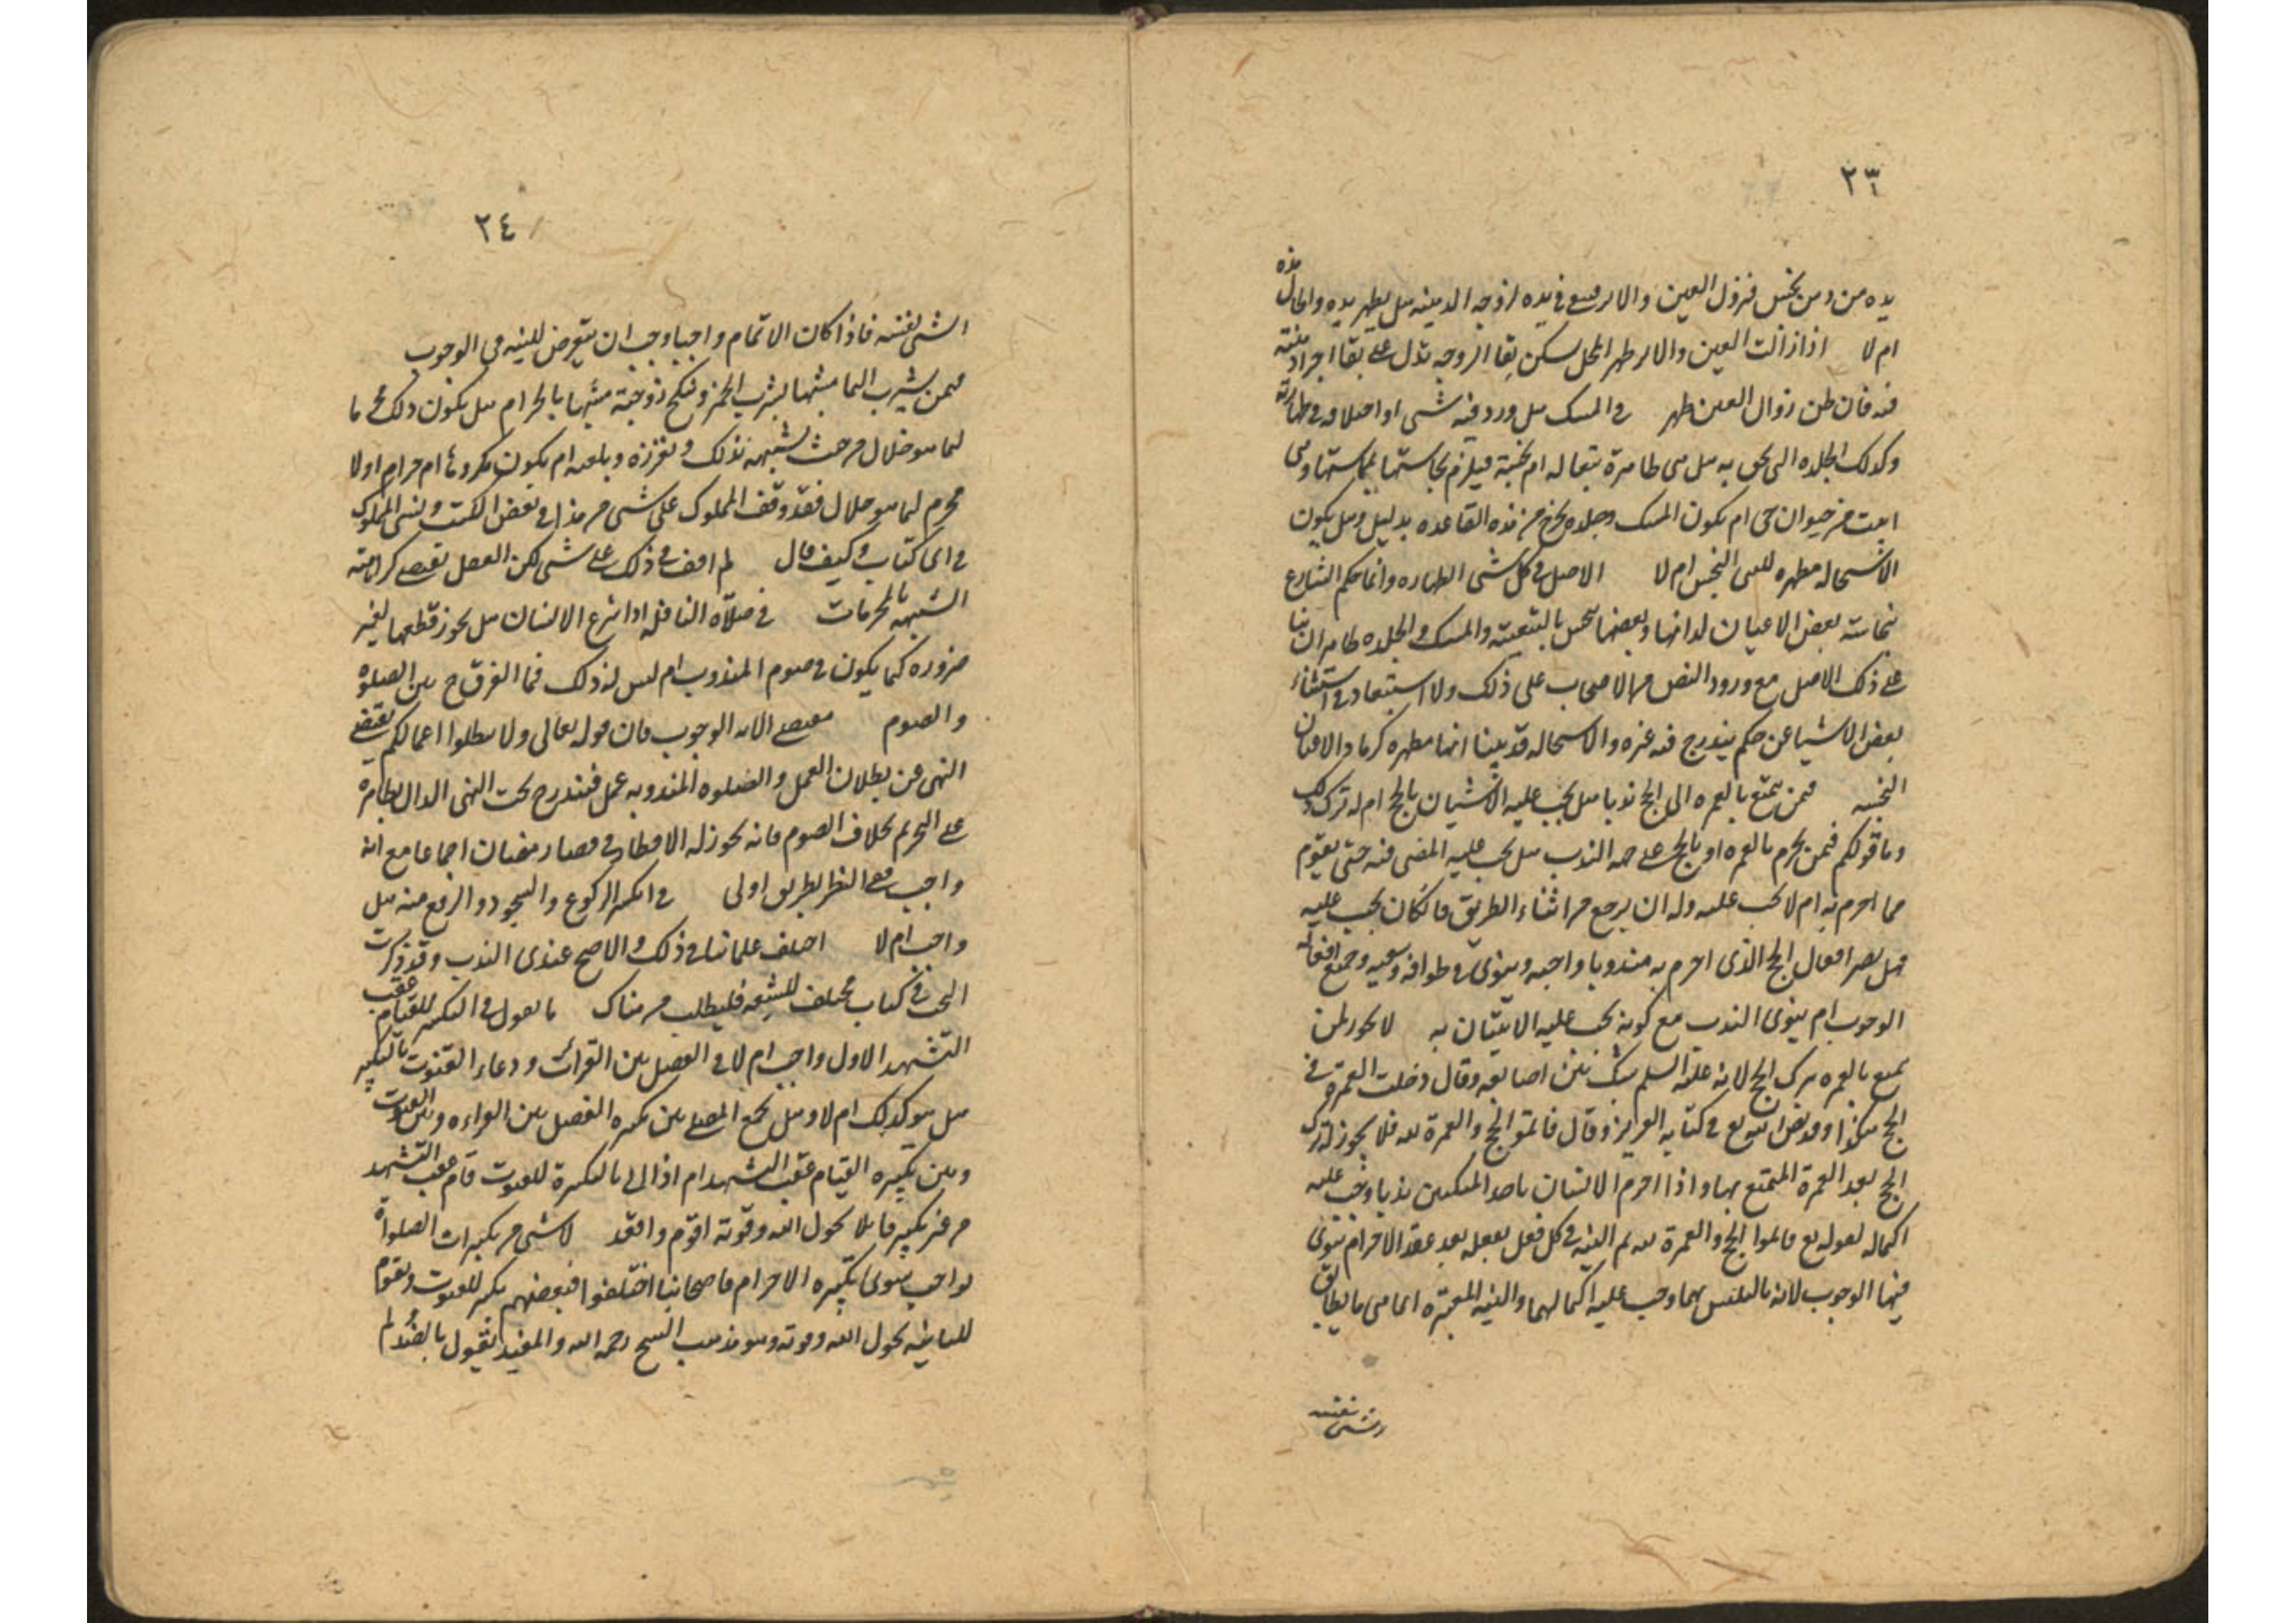 ٢٣
يده من دهن نجس فتزول العين والاثر فيبقى في يده لزوجة الدهنية هل يطهر يده والحال هذه
ام لا اذا زالت العين والاثر طهر المحل لكن بقا الزوجة تدل على بقا اجزاء دهنية
فيه فان ظن زوال العين طهر في المسك هل ورد فيه شي او اختلاف في طهارته
وكذلك الجلدة التي يحق به هل هي طاهرة بتعاله ام نجسة فيلزم نجاستها نجاستها وهي
ابينت من حيوان حي ام يكون المسك وجلده يخرج من هذه القاعده بدليل وهل يكون
الاستحاله مطهره للشي النجس ام لا الاصل في كل شي الطهاره وانما حكم الشارع
بنجاسته بعض الاعيان لذاتها وبعضها نجس بالتبعية والمسك والجلده طاهران بنا
على ذلك الاصل مع ورود النص من الاصحاب على ذلك ولا استبعاد في استثناء
بعض الاشيا عن حكم يندرج فيه غيره والاستحاله قد بينا انها مطهره كرماد الاعيان
النجسه فيمن تمتع بالعمره الى الحج ندبا هل يجب عليه الاتيان بالحج ام له ترك ذلك
وما قولكم فيمن يحرم بالعمره او بالحج على جهة الندب هل يجب عليه المضي فيه حتى يقوم
مما احرم به ام لا يجب عليه وله ان يرجع من اثناء الطريق فان كان يجب عليه
فهل يصير افعال الحج الذي احرم به مندوبا واجبه وينوي في طوافه وسعيه وجميع افعاله
الوجوب ام ينوي الندب مع كونه يجب عليه الاتيان به لا يجوز لمن
تمتع بالعمره ترك الحج لانه عليه السلم شبك بين اصابعه وقال دخلت العمرة في
الحج هكذا وقد نص الله تع في كتابه العزيز وقال فاتموا الحج والعمرة لله فلا يجوز له ترك
الحج بعد العمرة المتمتع بها واذا احرم الانسان باحد النسكين ندبا وجب عليه
اكماله لقوله تع فاتموا الحج والعمرة لله ثم النيه في كل فعل يفعله بعد عقد الاحرام ينوي
فيها الوجوب لانه بالتلبس بهما وجب عليه اكمالهما والنيه المعتبره انما هي ما يطابق
الشي نفسه
٢٤
الشي نفسه فاذا كان الاتمام واجبا وجب ان يتعرض للنيه في الوجوب
فيمن يشرب الما مشبها بشرب الخمر وينكح زوجته مشبها بالحرام هل يكون ذلك محرما
لما هو حلال من حيث تشبيهه بذلك ام يكون مكروها ام حرام او لا
محرم لما هو حلال فقد وقف المملوك على شي من هذا في بعض الكتب ونسي المملوك
في اي كتاب وكيف قال لم اقف في ذلك على شي لكن العقل يقتضي كراهته
التشبيه بالمحرمات في صلاة النافلة اذا شرع الانسان هل يجوز قطعها لغير
ضروره كما يكون في صوم المندوب ام ليس له ذلك فما الفرق ح بين الصلوة
والصوم مقتضى الايه الوجوب فان قوله تعالى ولا تبطلوا اعمالكم يقتضي
النهي عن بطلان العمل والصلوه المندوبه عمل فتندرج تحت النهي الدال بظاهره
على التحريم بخلاف الصوم فانه يجوز له الافطار في قضاء رمضان اجماعا مع انه
واجب ففي النفل بطريق اولى في تكبير الركوع والسجود والرفع منه هل
واجب ام لا اختلف علمائنا في ذلك والاصح عندي الندب وقد ذكرت
البحث في كتاب مختلف الشيعه فليطلب من هناك ما نقول في التكبير للقيام عقب
التشهد الاول واجب ام لا في الفصل بين القرائة ودعاء القنوت بالتكبير
هل هو كذلك ام لا وهل يجمع المصلي بين تكبيره الفصل بين القراءه وبين القنوت
وبين تكبيره القيام عقب التشهد ام اذا اتى بالتكبيرة للقنوت قام عقب التشهد
من غير تكبير قائلا بحول الله وقوته اقوم واقعد لا شي من تكبيرات الصلواة
بواجب سوى تكبيره الاحرام فاصحابنا اختلفوا فبعضهم يكبر للقنوت ويقوم
للثانيه بحول الله وقوته وهو مذهب الشيخ رحمه الله والمفيد يقول بالضد ثم